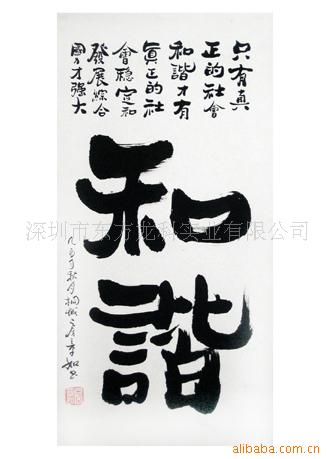 只有真
正的社會
和諧才有
眞正的社
會穩定和
發展綜合
國力才强大
和諧
深圳市东方龙科实业有限公司
alibaba.com.cn